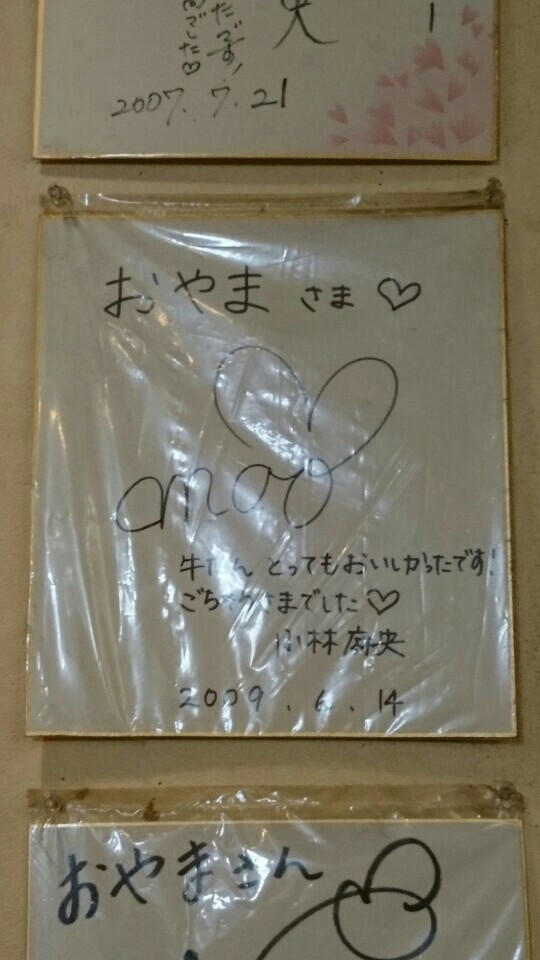 たです!
でした♡
2007.7.21
おやま さま ♡
mao
牛たん とってもおいしかったです!
ごちそうさまでした♡
小林麻央
2009.6.14
おやまさん